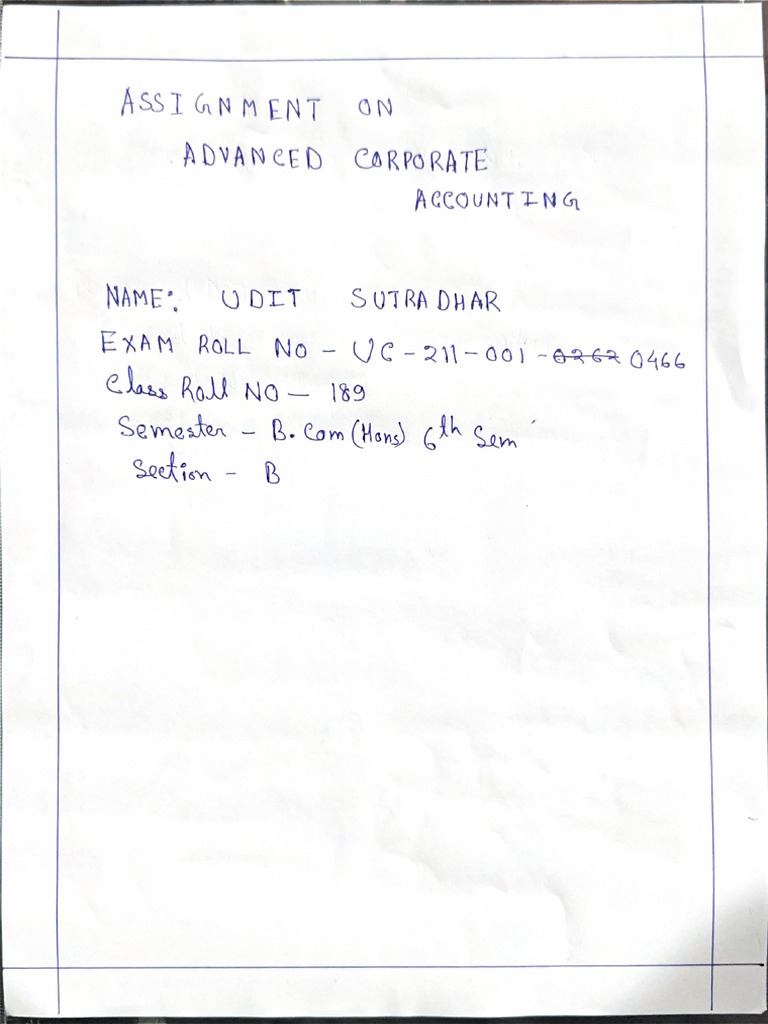 ASSIGNMENT ON
ADVANCED CORPORATE
ACCOUNTING
NAME: UDIT SUTRADHAR
EXAM ROLL NO - UC - 211 - 001 - 0262 0466
Class Roll NO - 189
Semester - B. Com (Hons) 6th Sem
Section - B